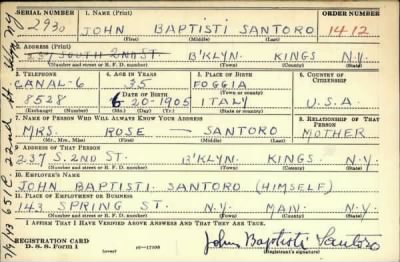 SERIAL NUMBER 1. NAME (Print) ORDER NUMBER
2930 JOHN BAPTISTI SANTORO 1412
(First) (Middle) (Last)
2. ADDRESS (Print)
237 SOUTH 2ND ST. B'KLYN. KINGS N.Y.
(Number and street or R. F. D. number) (Town) (County) (State)
3. TELEPHONE 4. AGE IN YEARS 5. PLACE OF BIRTH 6. COUNTRY OF CITIZENSHIP
CANAL-6 35 FOGGIA
DATE OF BIRTH (Town or county)
8528 6 20-1905 ITALY U.S.A.
(Exchange) (Number) (Mo.) (Day) (Yr.) (State or country)
7. NAME OF PERSON WHO WILL ALWAYS KNOW YOUR ADDRESS 8. RELATIONSHIP OF THAT PERSON
MRS. ROSE — SANTORO MOTHER
(Mr., Mrs., Miss) (First) (Middle) (Last)
9. ADDRESS OF THAT PERSON
237 S. 2ND ST. B'KLYN. KINGS N.Y.
(Number and street or R. F. D. number) (Town) (County) (State)
10. EMPLOYER'S NAME
JOHN BAPTISTI SANTORO (HIMSELF)
11. PLACE OF EMPLOYMENT OR BUSINESS
143 SPRING ST. N.Y. MAN. N.Y.
(Number and street or R. F. D. number) (Town) (County) (State)
I AFFIRM THAT I HAVE VERIFIED ABOVE ANSWERS AND THAT THEY ARE TRUE.
REGISTRATION CARD
D. S. S. Form 1 16—17105 John Baptisti Santoro
(Registrant's signature)
7/9/43 651 E. 22nd St.